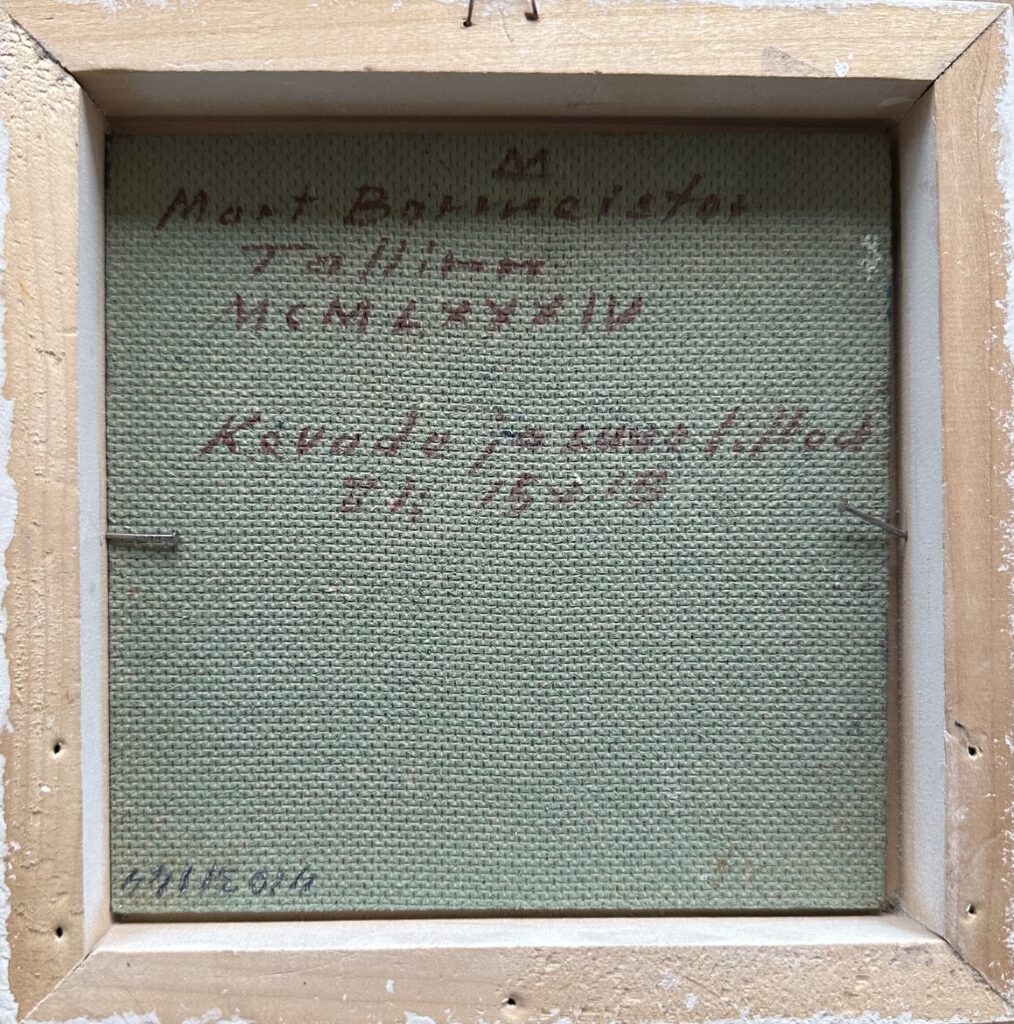 M
Mart Bormeister
Tallinn
MCMLXXXIV
Kevade ja suve lilled
T.h. 15x15